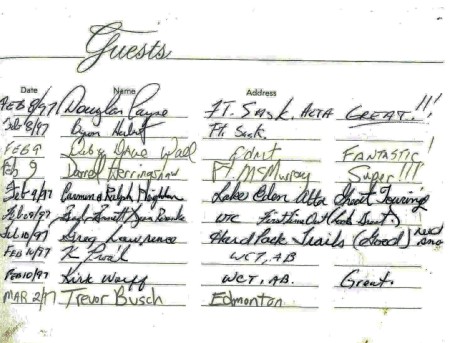 Guests
Date Name Address
FEB 8/97 Douglas Payne FT. Sask. ALTA GREAT!!!
Feb 8/97 Byron Ft. Sask.
FEB 9 Wall Edmt FANTASTIC!
Feb 9 Darrell Herringshaw FT. MSMurray Super!!!
Feb 9/97 Carmen & Ralph Lake Eden Alta Great Touring
Feb 09/97 WTC First Time Out (Look Great)
Feb 10/97 Greg Lawrence Hard Pack Trails (Good) need sno
FEB 10/97 K WCT, AB
FEB 10/97 Kirk WCT, AB. Great.
MAR 2/97 Trevor Busch Edmonton